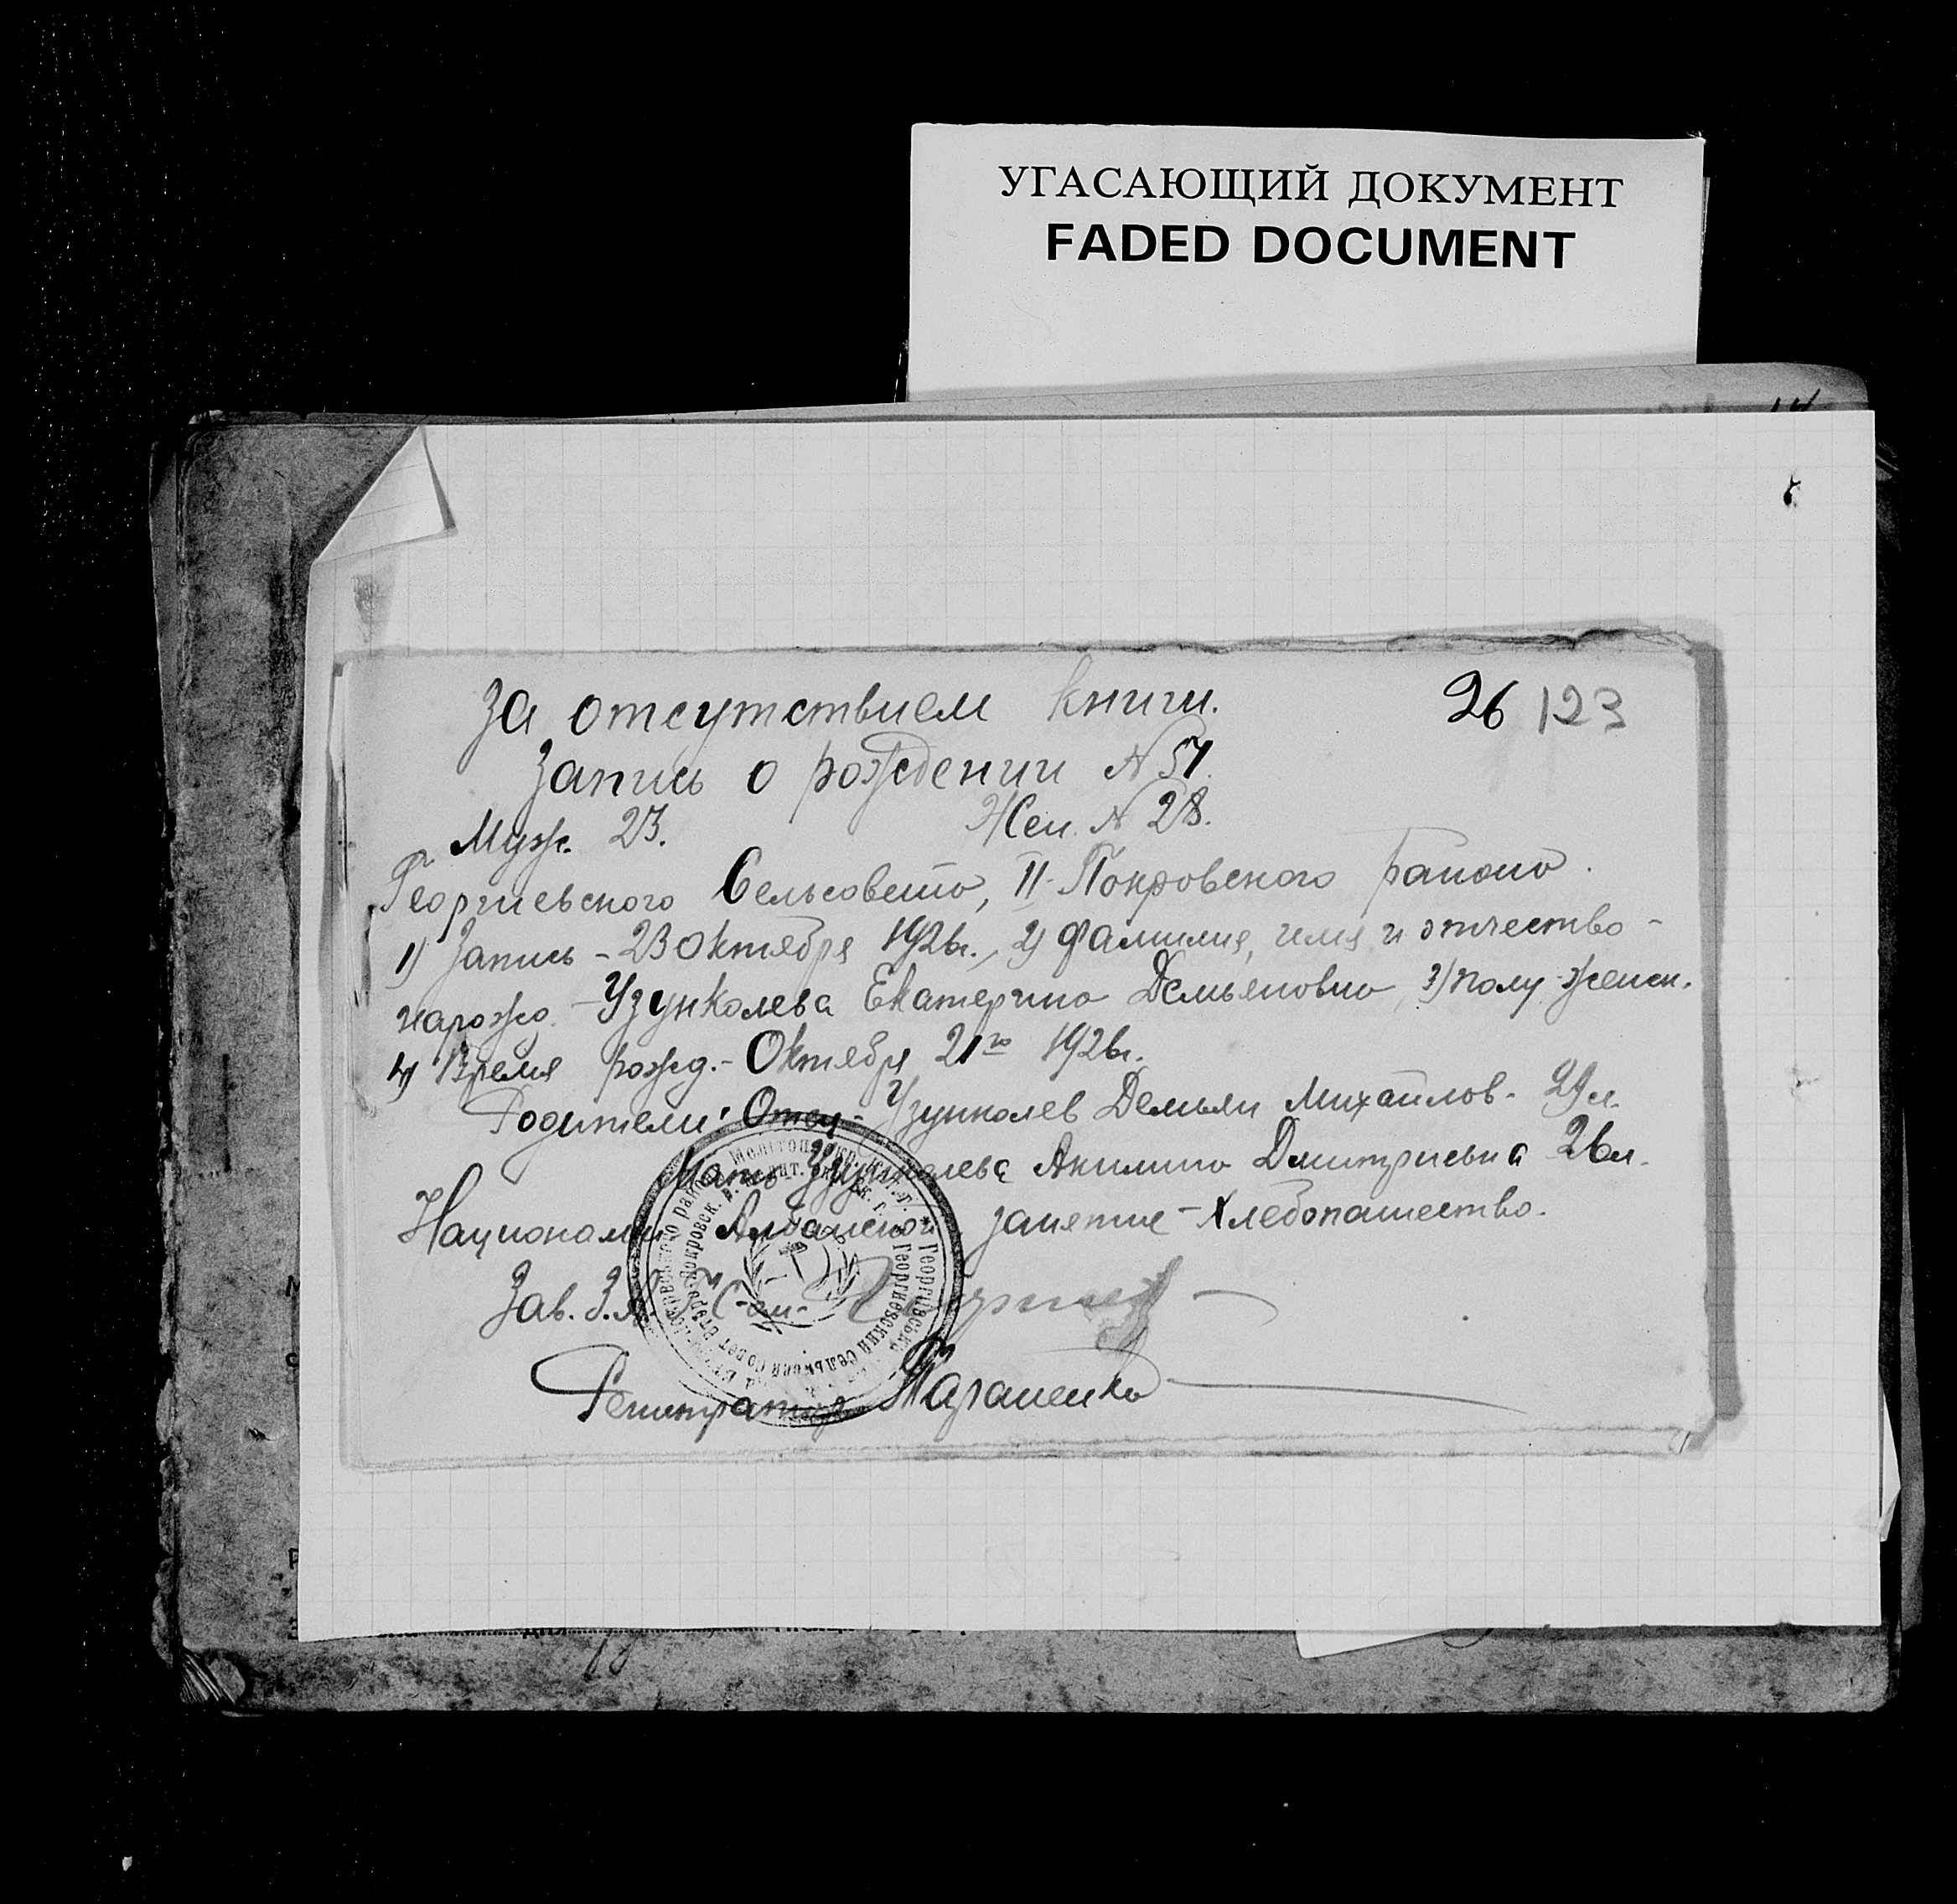 УГАСАЮЩИЙ ДОКУМЕНТ
FADED DOCUMENT
За отсутствием книги.
26 123
Запись о рождении N 51.
Муж. 23. Жен. N 28.
Георгиевского Сельсовета, II-Покровского района.
1) Запись - 23 Октября 1926г., 2) Фамилия, имя и отчество -
нарожд. - Узунколева Екатерина Демьяновна, 3) полу - женск.
4) Время рожд. - Октября 21го 1926г.
Родители: Отец - Узунколев Демьян Михайлов - 29 л.
Мать Узунколева Акилина Дмитриевна 26 л.
Национальн Албанской занятие - Хлебопашество.
Зав. З.А.
Регистратор